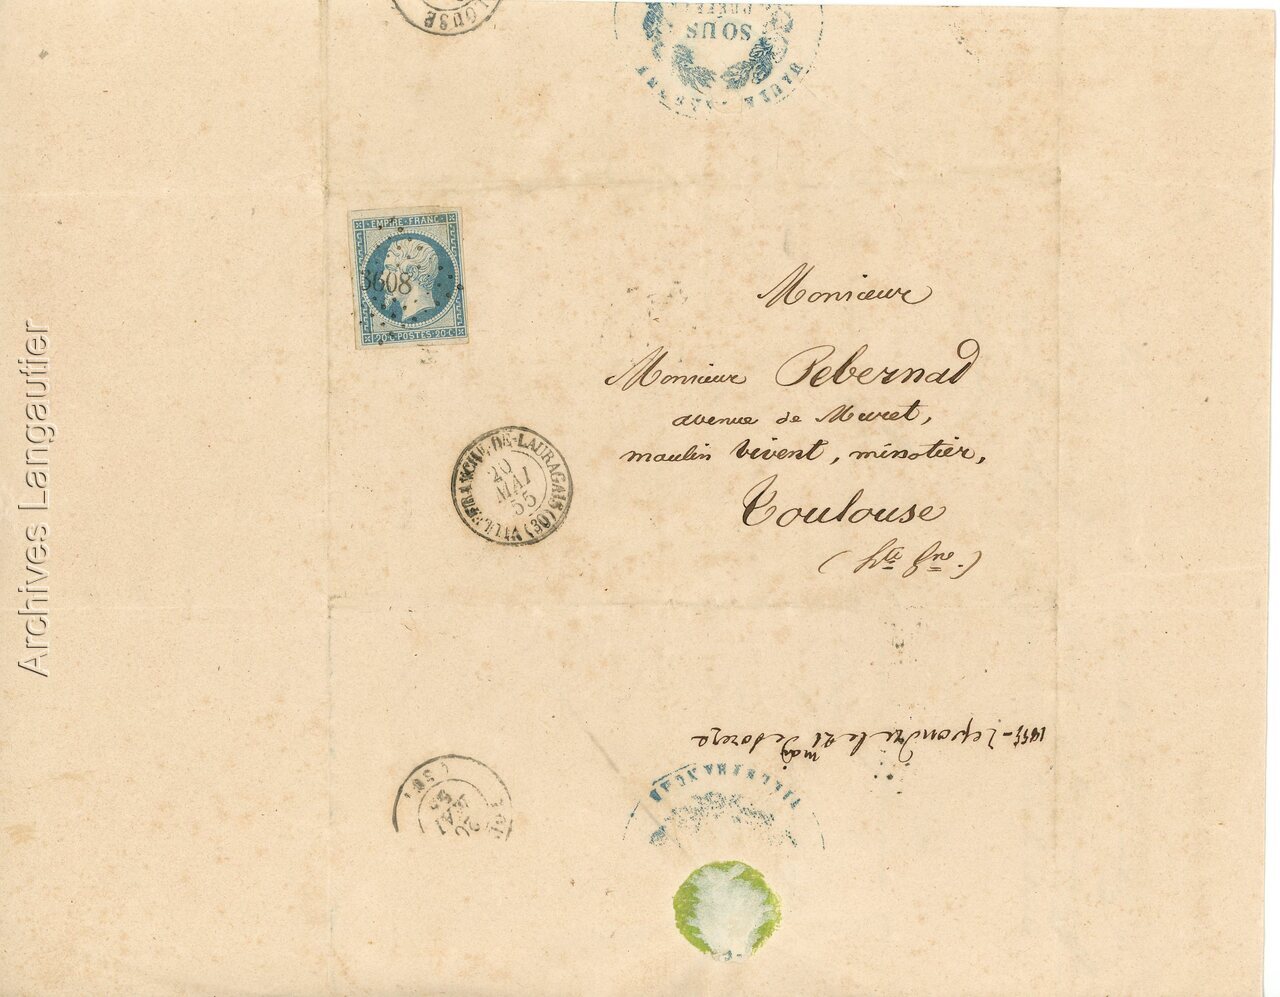 TOULOUSE
SOUS
HAUTE
EMPIRE FRANC
3608
20 C. POSTES 20 C.
Monsieur
Monsieur Pebernad
avenue de Muret,
moulin vivent, minotier,
Toulouse
(hte Gne.)
VILLEFRANCHE-DE-LAURAGAIS (30)
20
MAI
55
1855 - Repondre le 21
mai
20
MAI
55
VILLEFRANCHE
Archives Langautier